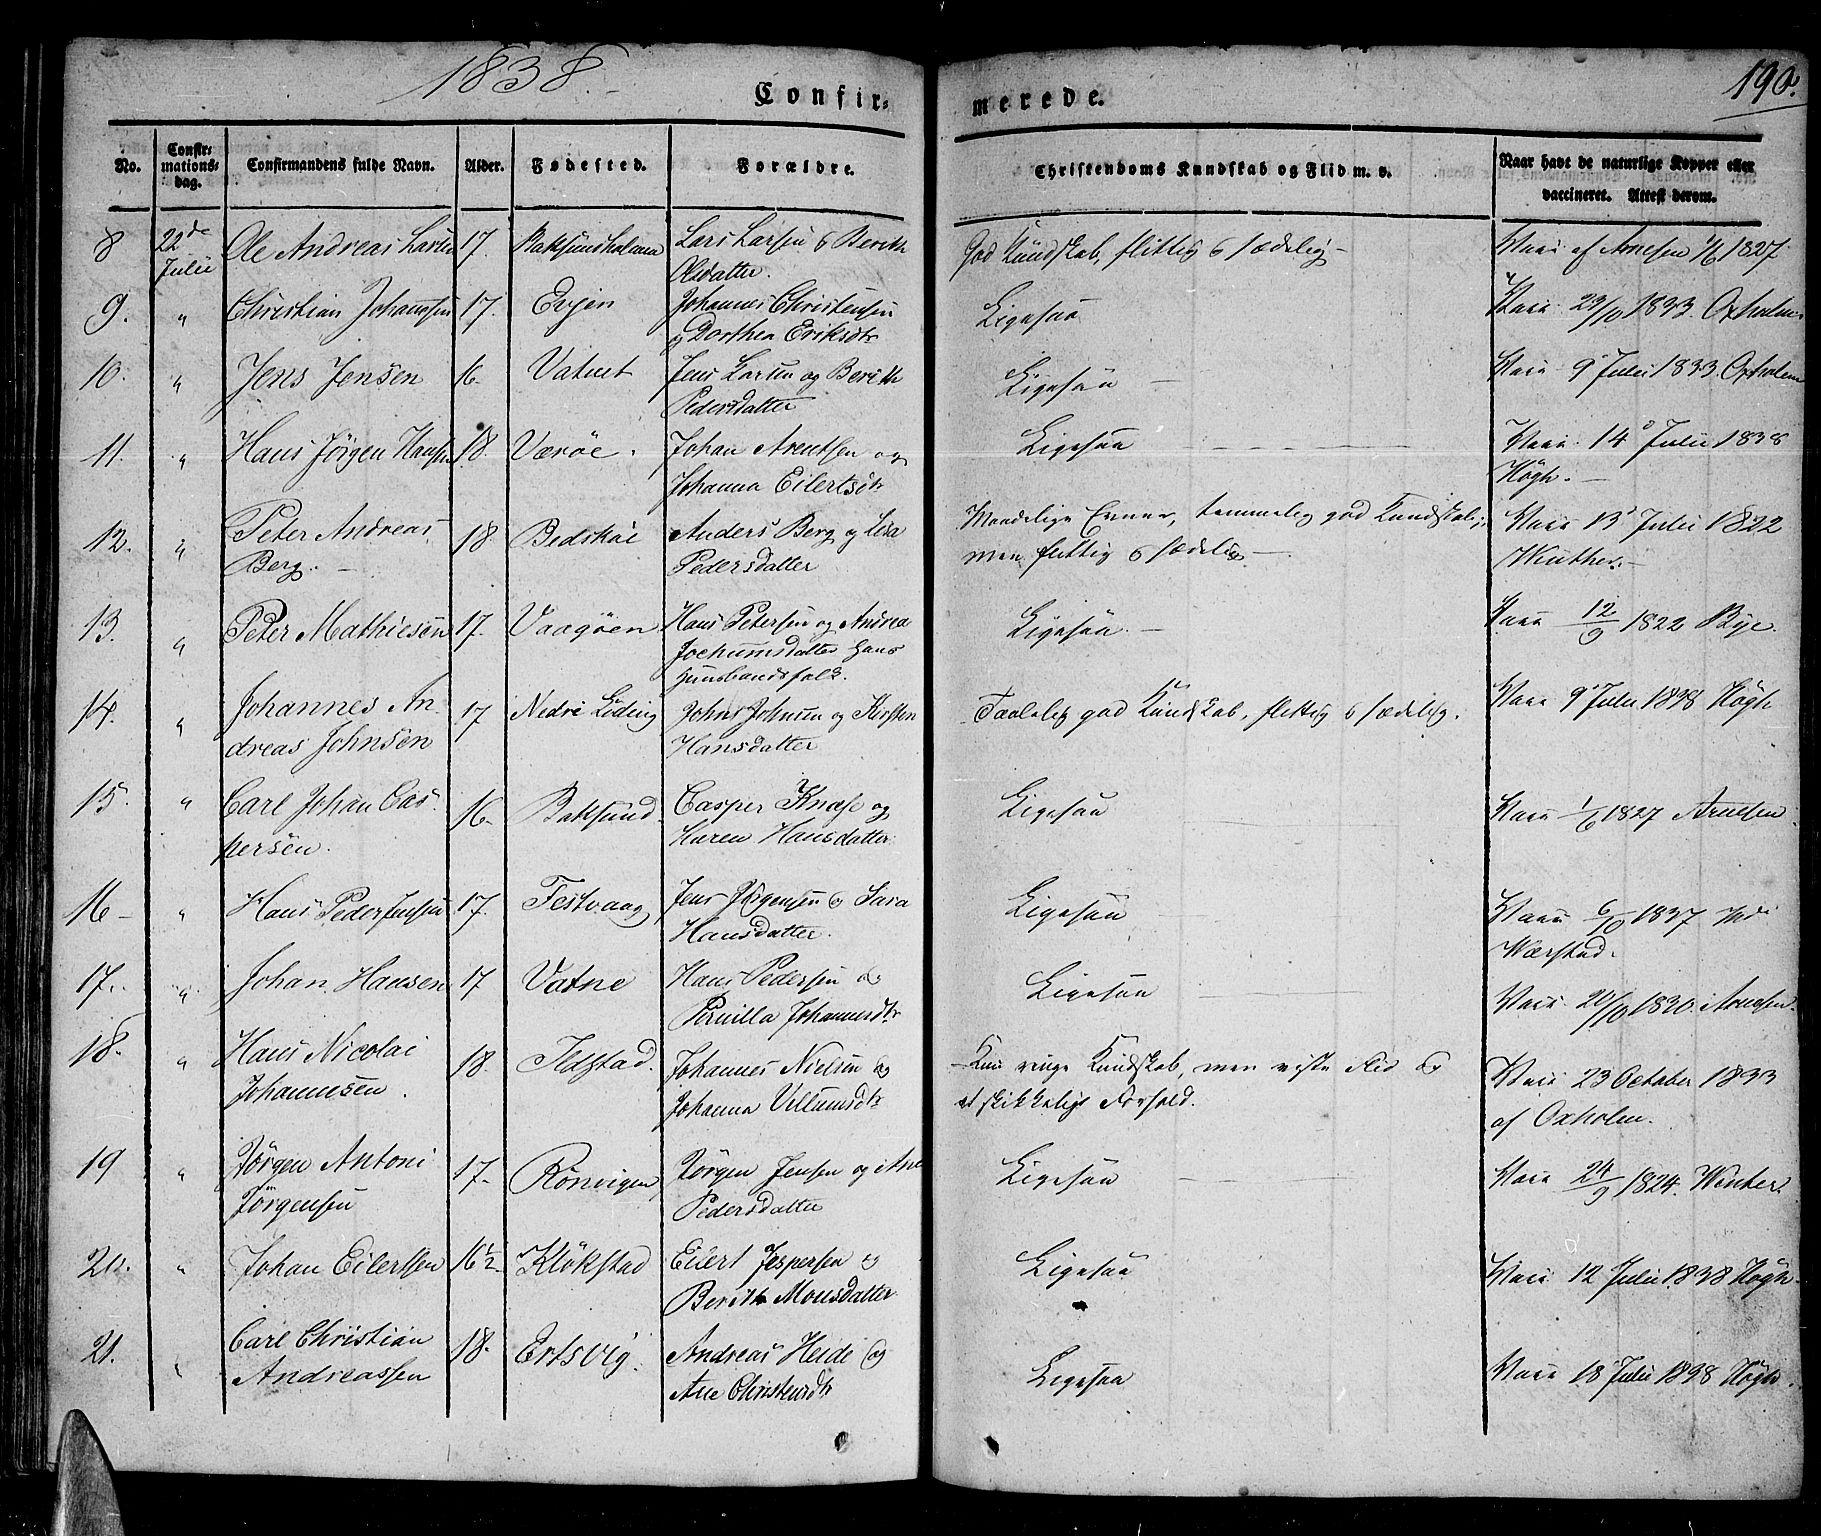 1838.
190.
Confir-
merede.
No.
Confirmations-
dag.
Confirmandens fulde Navn.
Alder.
Fødested.
Forældre.
Christendoms Kundskab og Flid m. v.
Naar havt de naturlige Kopper eller
vaccineret. Attest derom.
8 22de Julii Ole Andreas Larsen 17. Lars Larsen & Berith
Olsdatter.
God Kundskab, flittig & sædelig - Vacc: af Arnesen 1/6 1827
9. " Christian Johannsen 17. Evjen Johannes Christensen
og Dorthea Eriksdtr
Ligesaa Vacc: 23/10 1833 Oxholm
10. " Jens Jensen 16. Vatnet Jens Larsen og Berith
Pedersdatter
Ligesaa - Vacc: 9 Julii 1833. Oxholm
11. " Hans Jörgen Hansen 18. Værøe. Johan Arentsen og
Johanna Eilertsdtr
Ligesaa Vacc: 14 Julii 1838
Högh. -
12. " Peter Andreas
Berg. - 18 Anders Berg og Lisa
Pedersdatter
Maadelige Evner, temmelig god Kundskab,
men flittig & sædelig - Vacc: 13 Julii 1822
Winther. -
13. " Peter Mathiesen 17. Vaagöen Hans Petersen og Andrea
Jochumsdatter hans
Huusbondsfolk.
Ligesaa. - Vacc: 12/9 1822 Bye.
14. " Johannes An-
dreas Johnsen 17 Nedre John Johnsen og Kirsten
Hansdatter
Taalelig god Kundskab, flittig & sædelig. Vacc: 9 Julii 1838 Högh
15. " Carl Johan Cas-
persen. 16. Baksund. Casper Knæse og
Karen Hansdatter
Ligesaa Vacc: 1/6 1827 Arnesen.
16 - " Hans Peder Jensen 17. Festvaag Jens Jörgensen & Sara
Hansdatter.
Ligesaa Vacc: 6/10 1837
Wærstad.
17. " Johan Hansen 17 Vatne Hans Pedersen &
Pernilla Johannesdtr
Ligesaa Vacc: 1830. Arnesen.
18. " Hans Nicolai
Johannesen. 18. Johannes Nielsen &
Johanna Villumsdtr
Kun ringe Kundskab, men viste Flid &
et skikkeligt Forhold. Vacc: 23 October 1833
af Oxholm.
19 " Jörgen Antoni
Jörgensen 17. Rönvigen Jörgen Jensen og Ane
Pedersdatter
Ligesaa Vacc: 24/9 1824. Winter.
20. " Johan Eilertsen 16 1/2. Klökstad Eilert Jespersen &
Berith Monsdatter
Ligesaa Vacc: 12 Julii 1838 Högh.
21. " Carl Christian
Andreassen 18. Ertsvig. Andreas Heide og
Ane Christensdtr
Ligesaa Vacc: 18 Julii 1838 Högh.